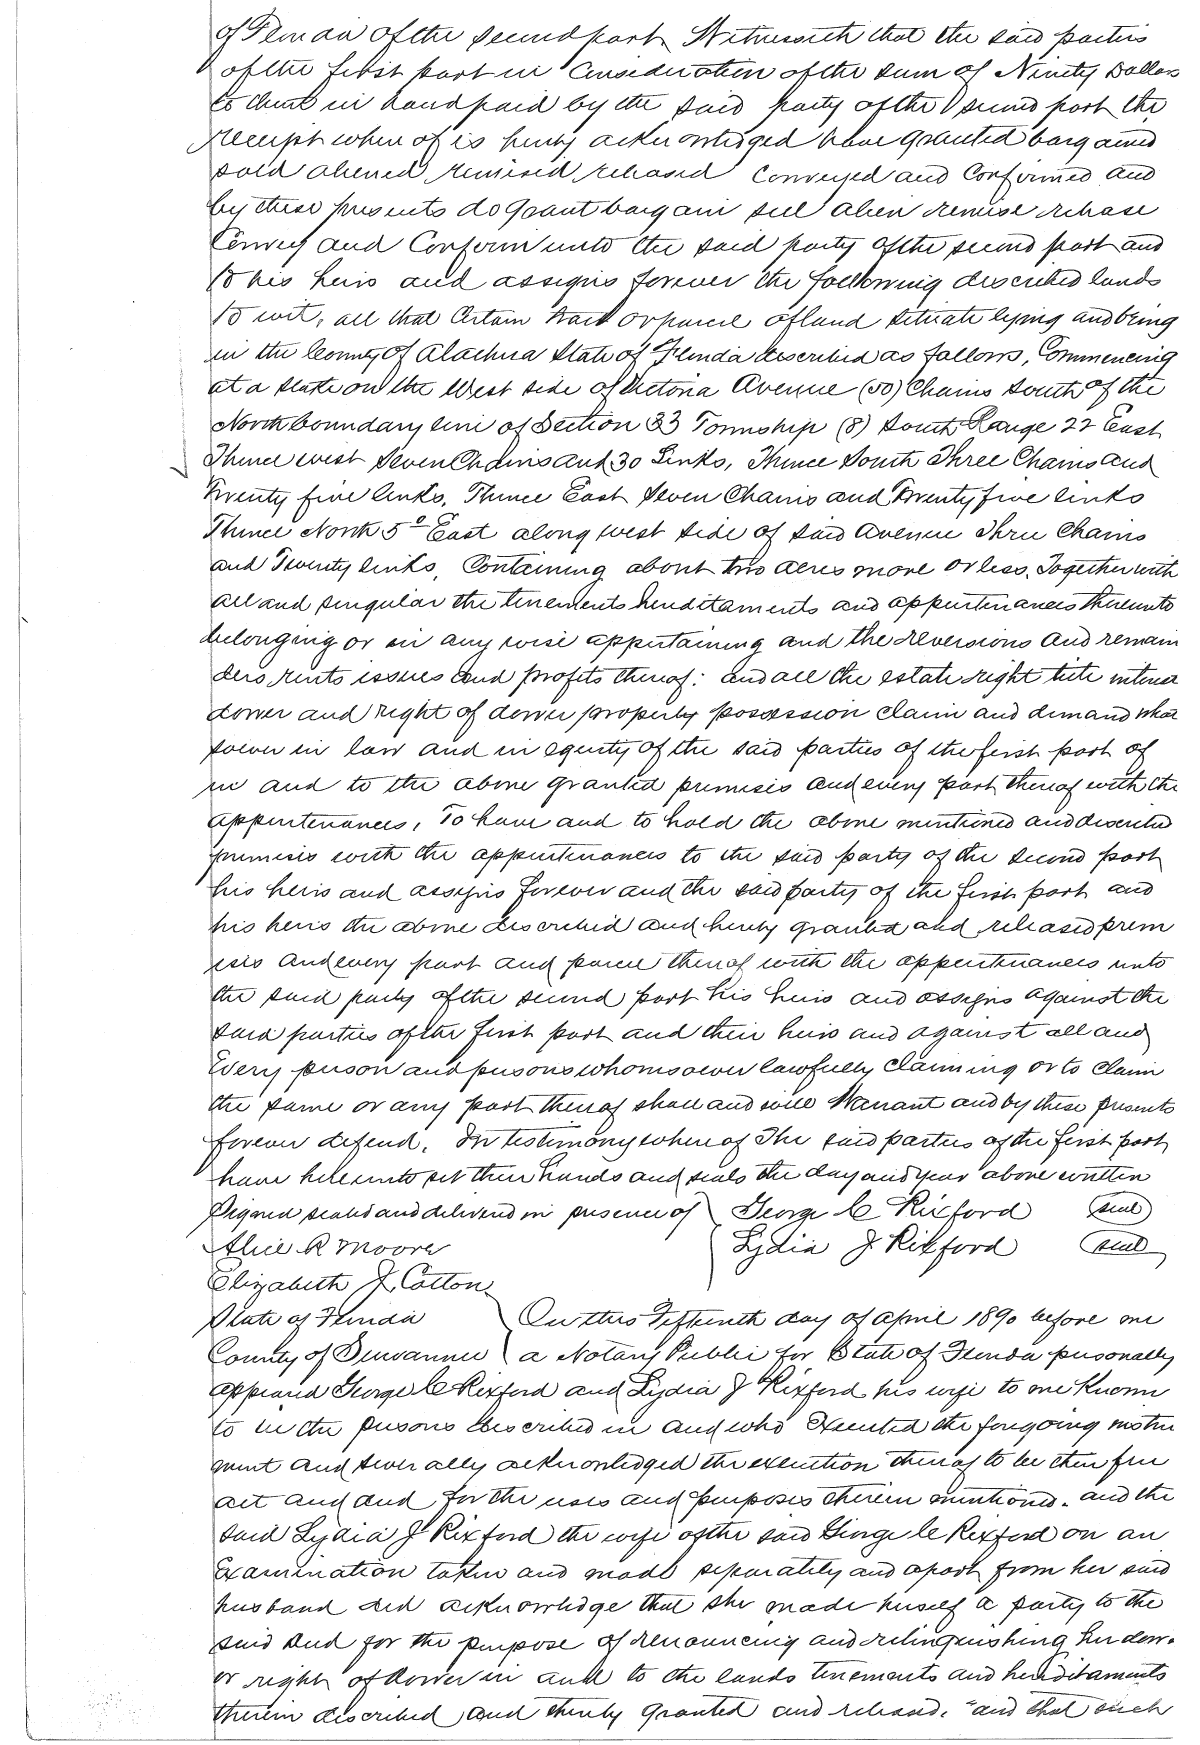 of Florida of the second part Witnesseth that the said parties
of the first part in Consideration of the sum of Ninety Dollars
to them in hand paid by the said party of the second part the
receipt where of is hereby acknowledged have granted bargained
sold aliened remised released Conveyed and Confirmed and
by these presents do grant bargain sell alien remise release
Convey and Confirm unto the said party of the second part and
to his heirs and assigns forever the following described lands
to wit, all that Certain tract or parcel of land situate lying and being
in the County of Alachua State of Florida described as follows, Commencing
at a stake on the West side of Victoria Avenue (50) Chains South of the
North boundary line of Section 33 Township (8) South Range 22 East
Thence west Seven Chains and 30 Links, Thence South Three Chains and
Twenty five links, Thence East Seven Chains and Twenty five links
Thence North 5° East along west side of said Avenue Three Chains
and Twenty links, Containing about two acres more or less, Together with
all and singular the tenements hereditaments and appurtenances thereunto
belonging or in any wise appertaining and the reversions and remain
ders rents issues and profits thereof: and all the estate right title interest
dower and right of dower property possession claim and demand what
soever in law and in equity of the said parties of the first part of
in and to the above granted premises and every part thereof with the
appurtenances, To have and to hold the above mentioned and described
premises with the appurtenances to the said party of the second part
his heirs and assigns forever and the said party of the first part and
his heirs the above described and hereby granted and released prem
ises and every part and parcel thereof with the appurtenances unto
the said party of the second part his heirs and assigns against the
said parties of the first part and their heirs and against all and
Every person and persons whomsoever lawfully claiming or to claim
the same or any part thereof shall and will Warrant and by these presents
forever defend. In testimony where of The said parties of the first part
have hereunto set their hands and seals the day and year above written
Signed sealed and delivered in presence of George C Rixford seal
Alice R Moore Lydia J Rixford seal
Elizabeth J. Cotton
State of Florida On this Fifteenth day of April 1890 before me
County of Suwannee a Notary Public for State of Florida personally
appeared George C Rixford and Lydia J Rixford his wife to me Known
to be the persons described in and who Executed the foregoing instru
ment and severally acknowledged the execution thereof to be their free
act and deed for the uses and purposes therein mentioned. and the
said Lydia J Rixford the wife of the said George C Rixford on an
Examination taken and made separately and apart from her said
husband did acknowledge that she made herself a party to the
said deed for the purpose of renouncing and relinquishing her dower
or right of dower in and to the lands tenements and hereditaments
therein described and thereby granted and released, and that such